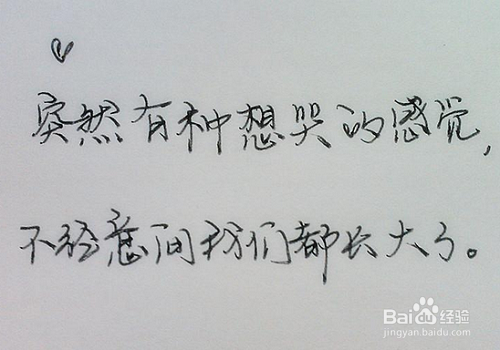 突然有种想哭的感觉，
不经意间我们都长大了。
Baidu经验
jingyan.baidu.com